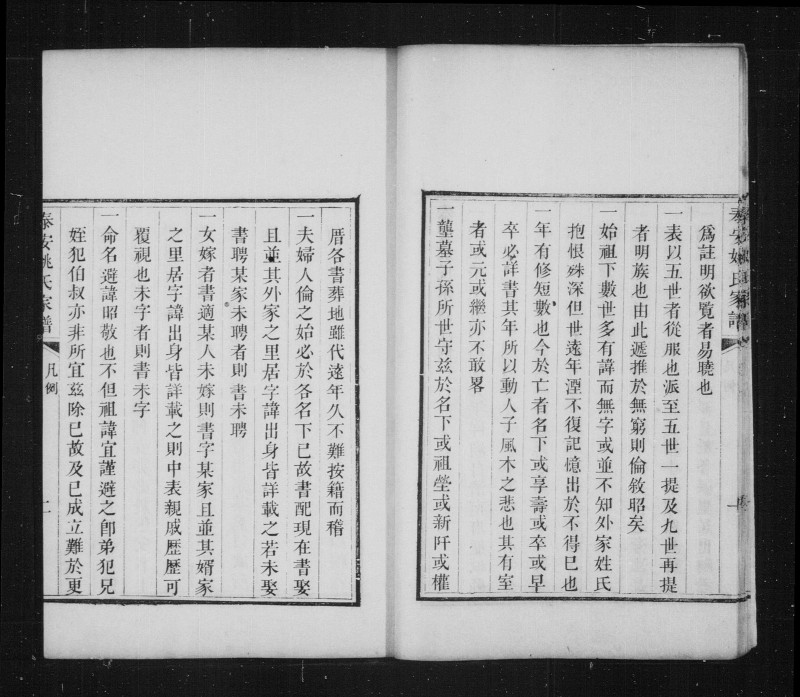 爲註明欲覧者易曉也
一表以五世者從服也派至五世一提及九世再提
者明族也由此遞推於無窮則倫敘昭矣
一始祖下數世多有諱而無字或並不知外家姓氏
抱恨殊深但世遠年湮不復記憶出於不得已也
一年有修短數也今於亡者名下或享壽或卒或早
卒必詳書其年所以動人子風木之悲也其有室
者或元或繼亦不敢畧
一壟墓子孫所世守兹於名下或祖塋或新阡或權
厝各書葬地雖代遠年久不難按籍而稽
一夫婦人倫之始必於各名下已故書配現在書娶
且並其外家之里居字諱出身皆詳載之若未娶
書聘某家未聘者則書未聘
一女嫁者書適某人未嫁則書字某家且並其婿家
之里居字諱出身皆詳載之則中表親戚歷歷可
覆視也未字者則書未字
一命名避諱昭敬也不但祖諱宜謹避之卽弟犯兄
姪犯伯叔亦非所宜兹除已故及已成立難於更
泰安姚氏家譜
凡例
二